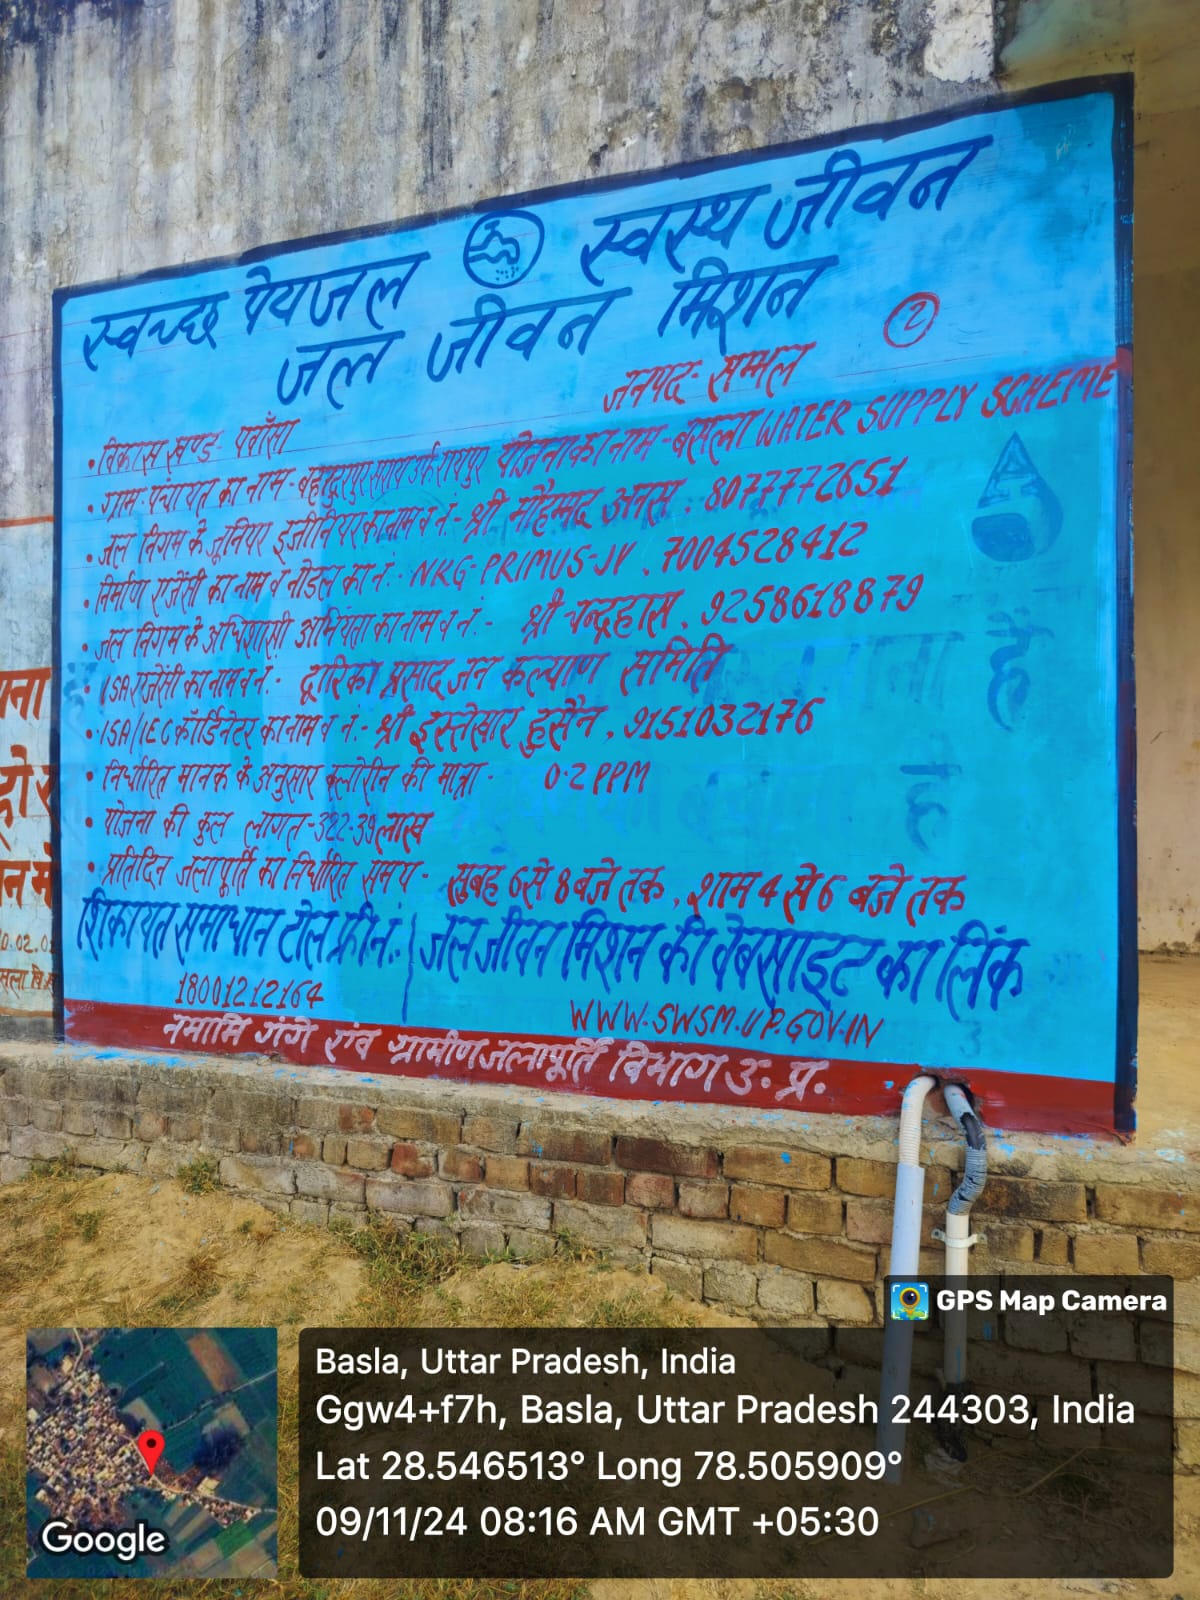 स्वच्छ पेयजल स्वस्थ जीवन
जल जीवन मिशन
2
जनपद- सम्भल
• विकास खण्ड- पवाँसा
• ग्राम-पंचायत का नाम- बहादूरपुर सराय उर्फ रायपुर योजना का नाम- बसला WATER SUPPLY SCHEME
• जल निगम के जूनियर इंजीनियर का नाम व नं.- श्री मौहम्मद अनस, 8077772651
• निर्माण एजेंसी का नाम व नोडल का नं.- NKG-PRIMUS-JV, 7004528412
• जल निगम के अधिशासी अभियंता का नाम व नं.- श्री चन्द्रहास, 9258618879
• ISA एजेंसी का नाम व नं.- द्वारिका प्रसाद जन कल्याण समिति
• ISA/IEC कॉर्डिनेटर का नाम व नं.- श्री इस्तेखार हुसैन, 9151032176
• निर्धारित मानक के अनुसार क्लोरीन की मात्रा- 0.2 PPM
• योजना की कुल लागत-322.39 लाख
• प्रतिदिन जलापूर्ति का निर्धारित समय- सुबह 6 से 8 बजे तक, शाम 4 से 6 बजे तक
शिकायत समाधान टोल फ्री नं.:
18001212164
जल जीवन मिशन की वेबसाइट का लिंक
WWW.SWSM.UP.GOV.IN
नमामि गंगे एंव ग्रामीण जलापूर्ति विभाग उ. प्र.
है
है
GPS Map Camera
Basla, Uttar Pradesh, India
Ggw4+f7h, Basla, Uttar Pradesh 244303, India
Lat 28.546513° Long 78.505909°
09/11/24 08:16 AM GMT +05:30
Google